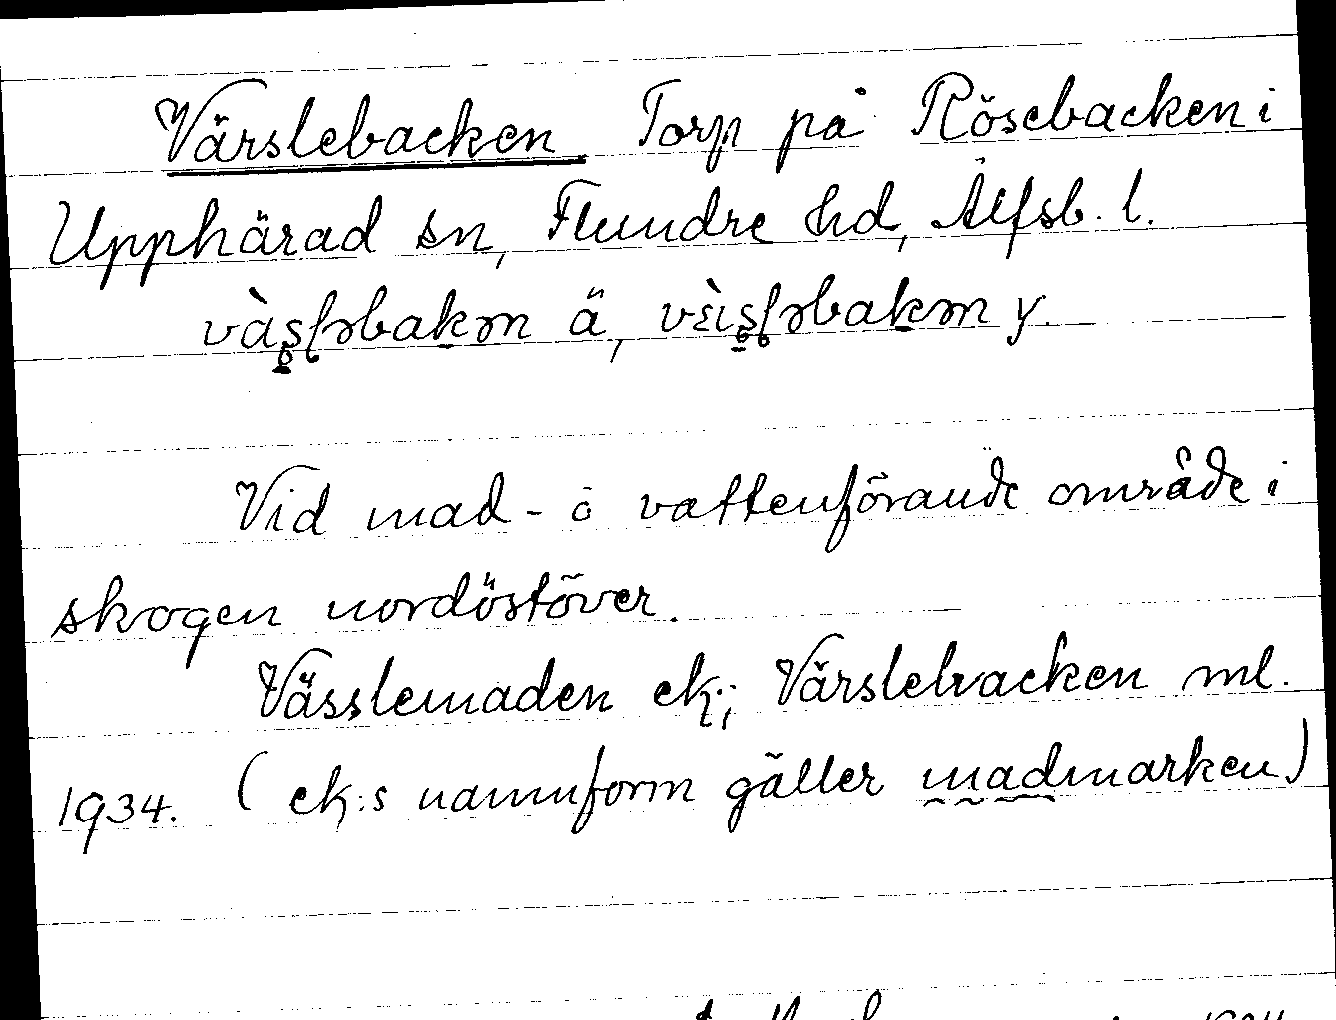 Värslebacken Torp på Rösebacken i
Upphärad sn, Flundre hd, Älfsb. l.
ä, y.
Vid mad- o vattenförande område i
skogen nordöstöver.
Vässlemaden ek.; Värslebacken ml.
1934. (ek:s namnform gäller madmarken)